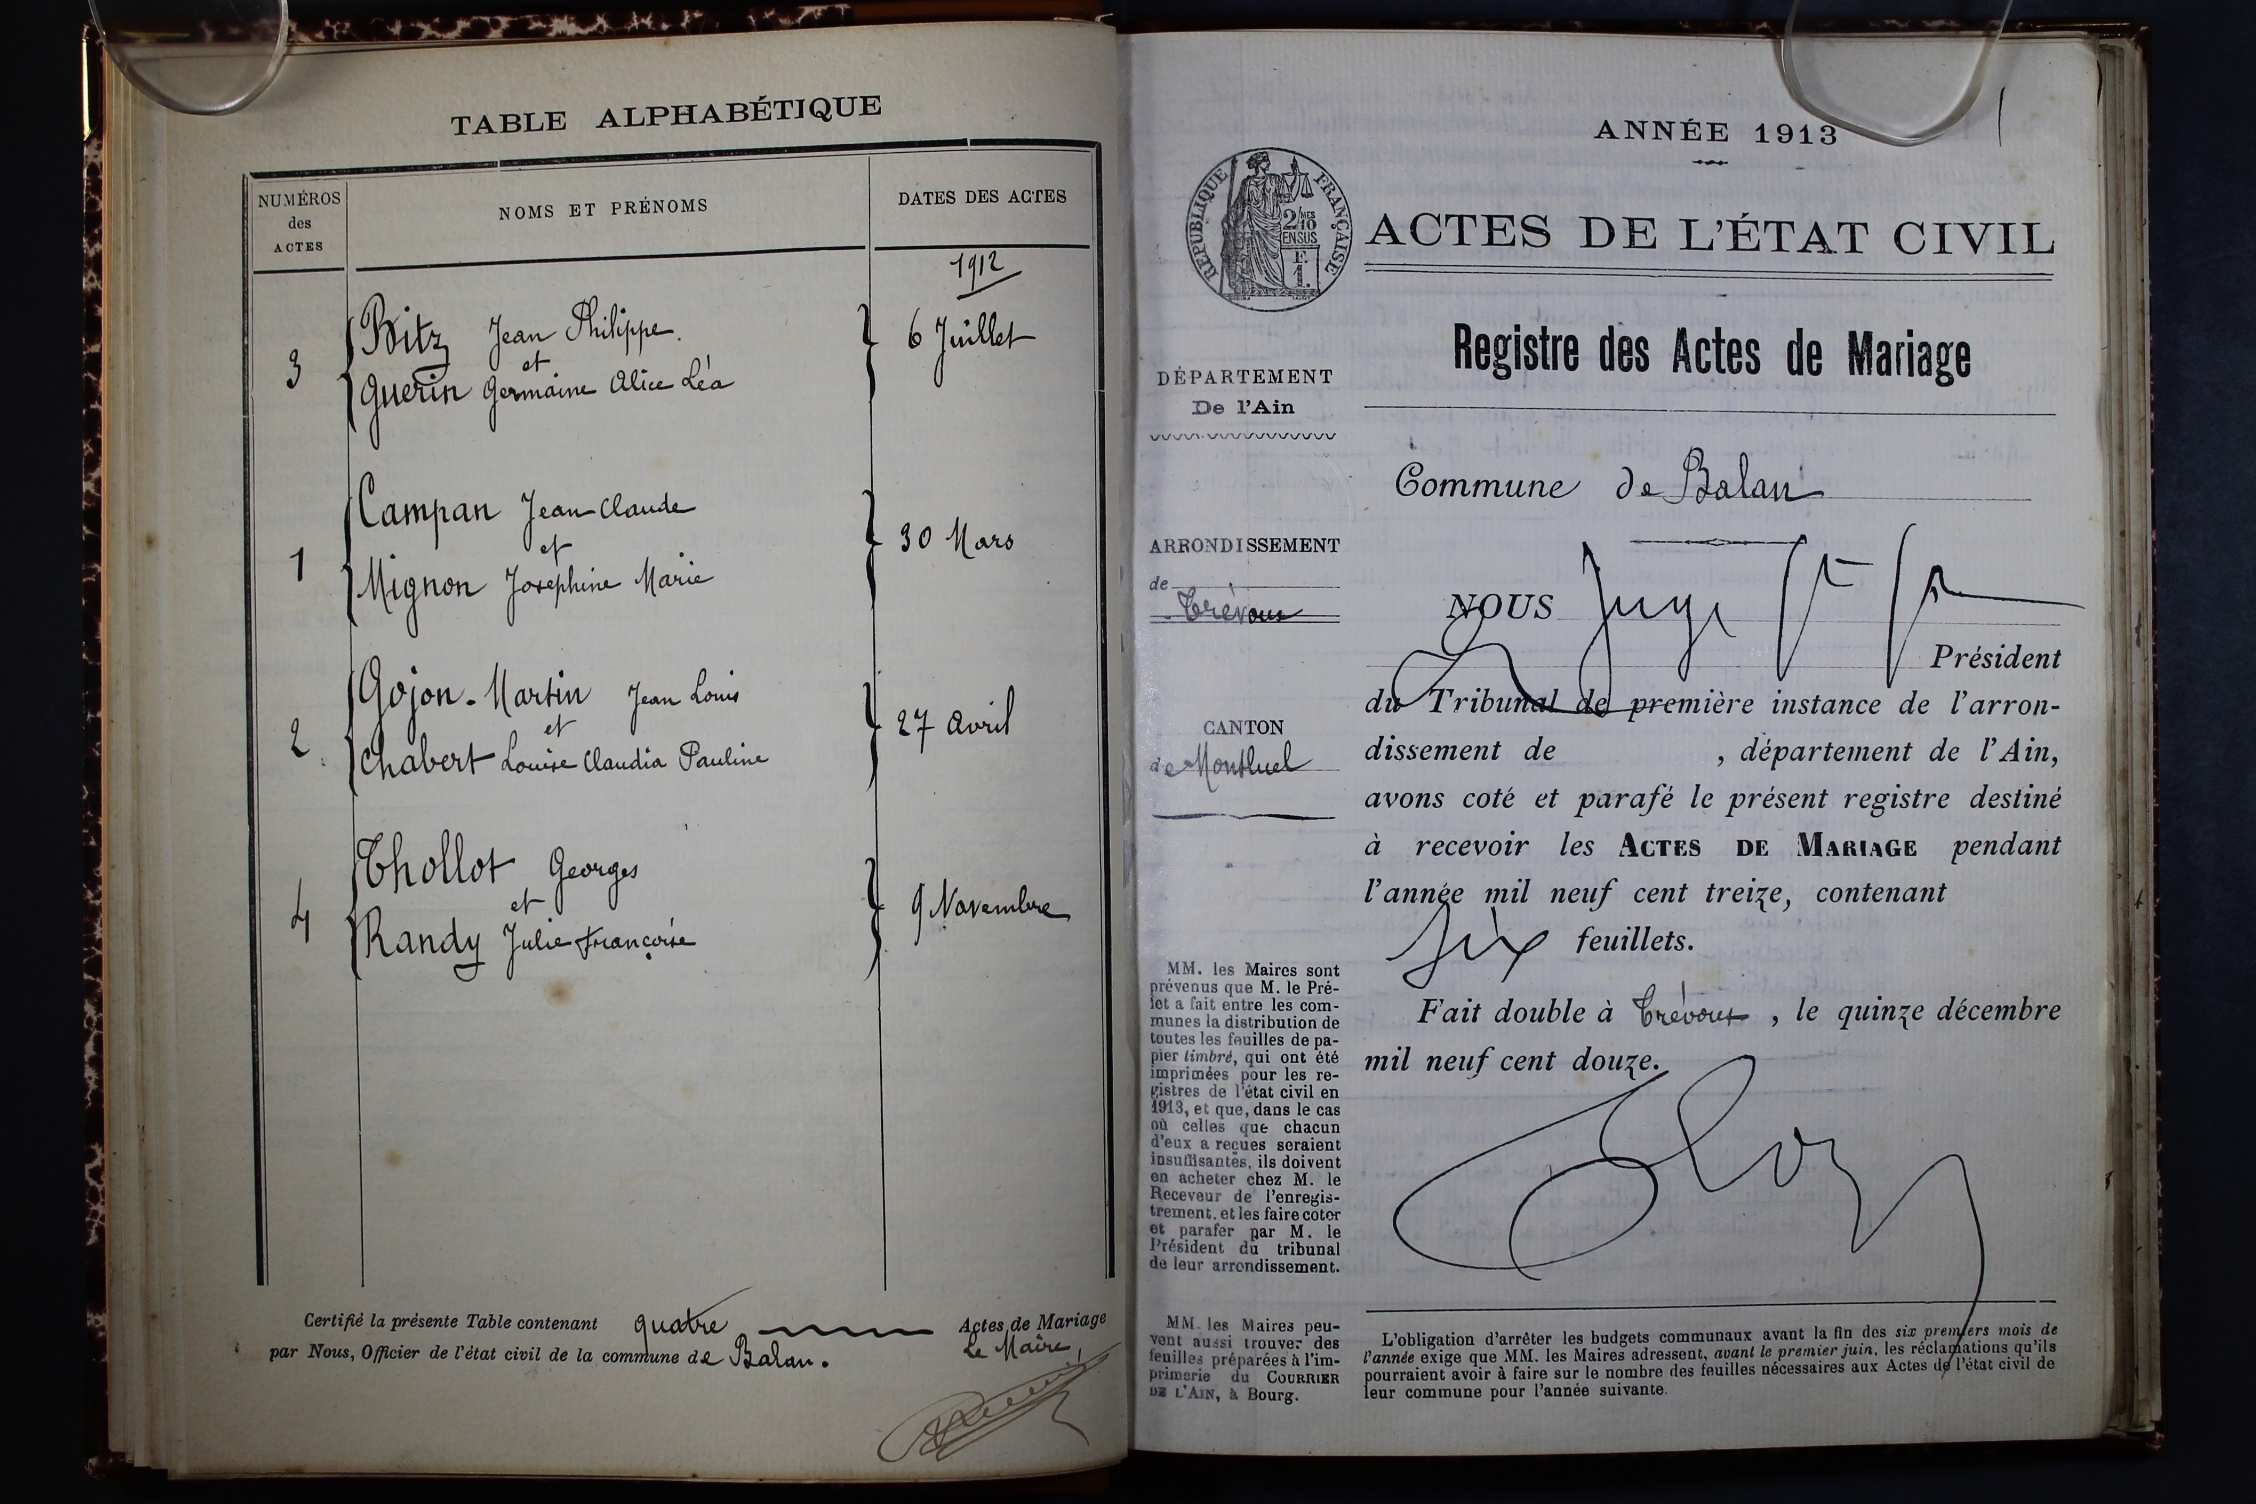 TABLE ALPHABÉTIQUE
NUMÉROS
des
ACTES
NOMS ET PRÉNOMS
DATES DES ACTES
1912
3
Bitz Jean Philippe.
et
Guerin Germaine Alice Léa
6 Juillet
1
Campan Jean Claude
et
Mignon Josephine Marie
30 Mars
2
Gojon-Martin Jean Louis
et
Chabert Louise Claudia Pauline
27 Avril
4
Thollot Georges
et
Randy Julie Françoise
9 Novembre
Certifié la présente Table contenant quatre Actes de Mariage
par Nous, Officier de l'état civil de la commune de Balan.
Le Maire,
ANNÉE 1913
RÉPUBLIQUE FRANÇAISE
2/10 MES
EN SUS
F.
1.
ACTES DE L'ÉTAT CIVIL
Registre des Actes de Mariage
DÉPARTEMENT
De l'Ain
ARRONDISSEMENT
de
Trévoux
CANTON
de Montluel
MM. les Maires sont
prévenus que M. le Pré-
fet a fait entre les com-
munes la distribution de
toutes les feuilles de pa-
pier timbré, qui ont été
imprimées pour les re-
gistres de l'état civil en
1913, et que, dans le cas
où celles que chacun
d'eux a reçues seraient
insuffisantes, ils doivent
en acheter chez M. le
Receveur de l'enregis-
trement, et les faire coter
et parafer par M. le
Président du tribunal
de leur arrondissement.
MM. les Maires peu-
vent aussi trouver des
feuilles préparées à l'im-
primerie du COURRIER
DE L'AIN, à Bourg.
Commune de Balan
NOUS Juge
Président
du Tribunal de première instance de l'arron-
dissement de , département de l'Ain,
avons coté et parafé le présent registre destiné
à recevoir les ACTES DE MARIAGE pendant
l'année mil neuf cent treize, contenant
six feuillets.
Fait double à Trévoux, le quinze décembre
mil neuf cent douze.
L'obligation d'arrêter les budgets communaux avant la fin des six premiers mois de
l'année exige que MM. les Maires adressent, avant le premier juin, les réclamations qu'ils
pourraient avoir à faire sur le nombre des feuilles nécessaires aux Actes de l'état civil de
leur commune pour l'année suivante.